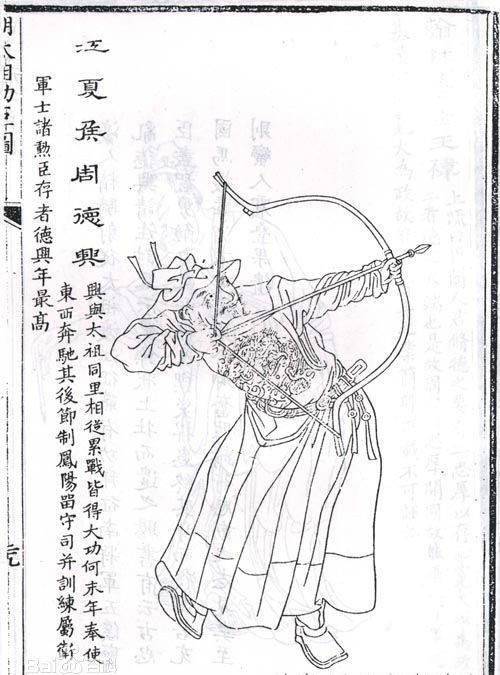 江夏侯周德興
興與太祖同里相從累戰皆得大功何末年奉使
東西奔馳其後節制鳳陽畱守司并訓練屬衛
軍士諸勳臣存者德興年最高
明太祖功臣圖
Baidu百科